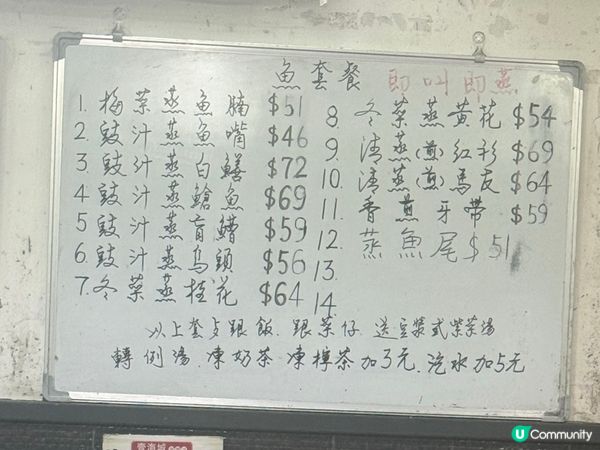 魚套餐 即叫即蒸
1. 梅菜蒸魚腩 $51
2. 豉汁蒸魚嘴 $46
3. 豉汁蒸白鱔 $72
4. 豉汁蒸鯧魚 $69
5. 豉汁蒸盲鰽 $59
6. 豉汁蒸烏頭 $56
7. 冬菜蒸桂花 $64
8. 冬菜蒸黄花 $54
9. 清蒸(煎)紅衫 $69
10. 清蒸(煎)馬友 $64
11. 香煎牙帶 $59
12. 蒸魚尾 $51
13.
14.
以上套歺跟飯、跟菜仔、送豆漿或紫菜湯
轉例湯、凍奶茶、凍檸茶加3元、汽水加5元
U Community